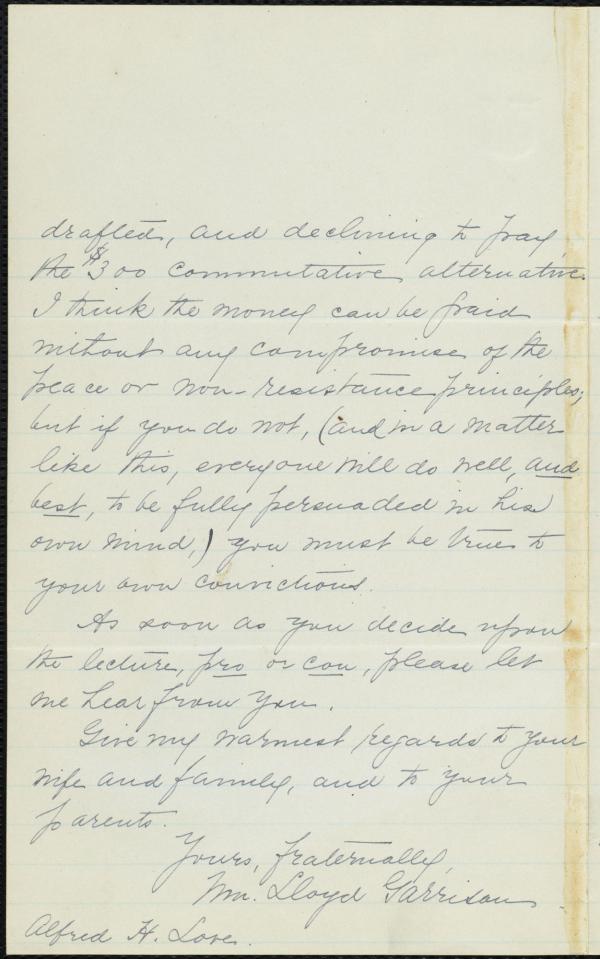 drafted, and declining to pay
the $300 commutative alternative.
I think the money can be paid
without any compromise of the
peace or non-resistance principles;
but if you do not, (and in a matter
like this, everyone will do well, and
best, to be fully persuaded in his
own mind,) you must be true to
your own convictions.
As soon as you decide upon
the lecture, pro or con, please let
me hear from you.
Give my warmest regards to your
wife and family, and to your
parents.
Yours, fraternally,
Wm. Lloyd Garrison.
Alfred H. Love.